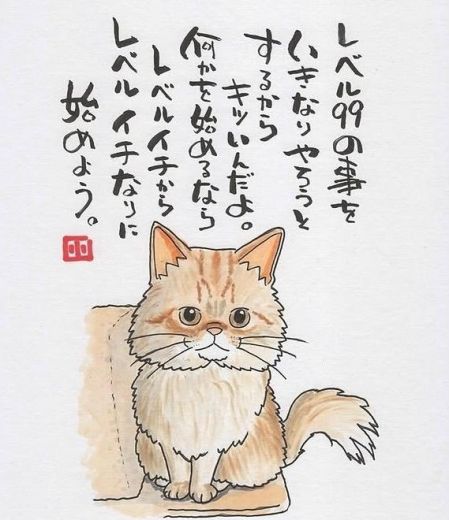 レベル99の事を
いきなりやろうと
するから
キツいんだよ。
何かを始めるなら
レベルイチから
レベルイチなりに
始めよう。